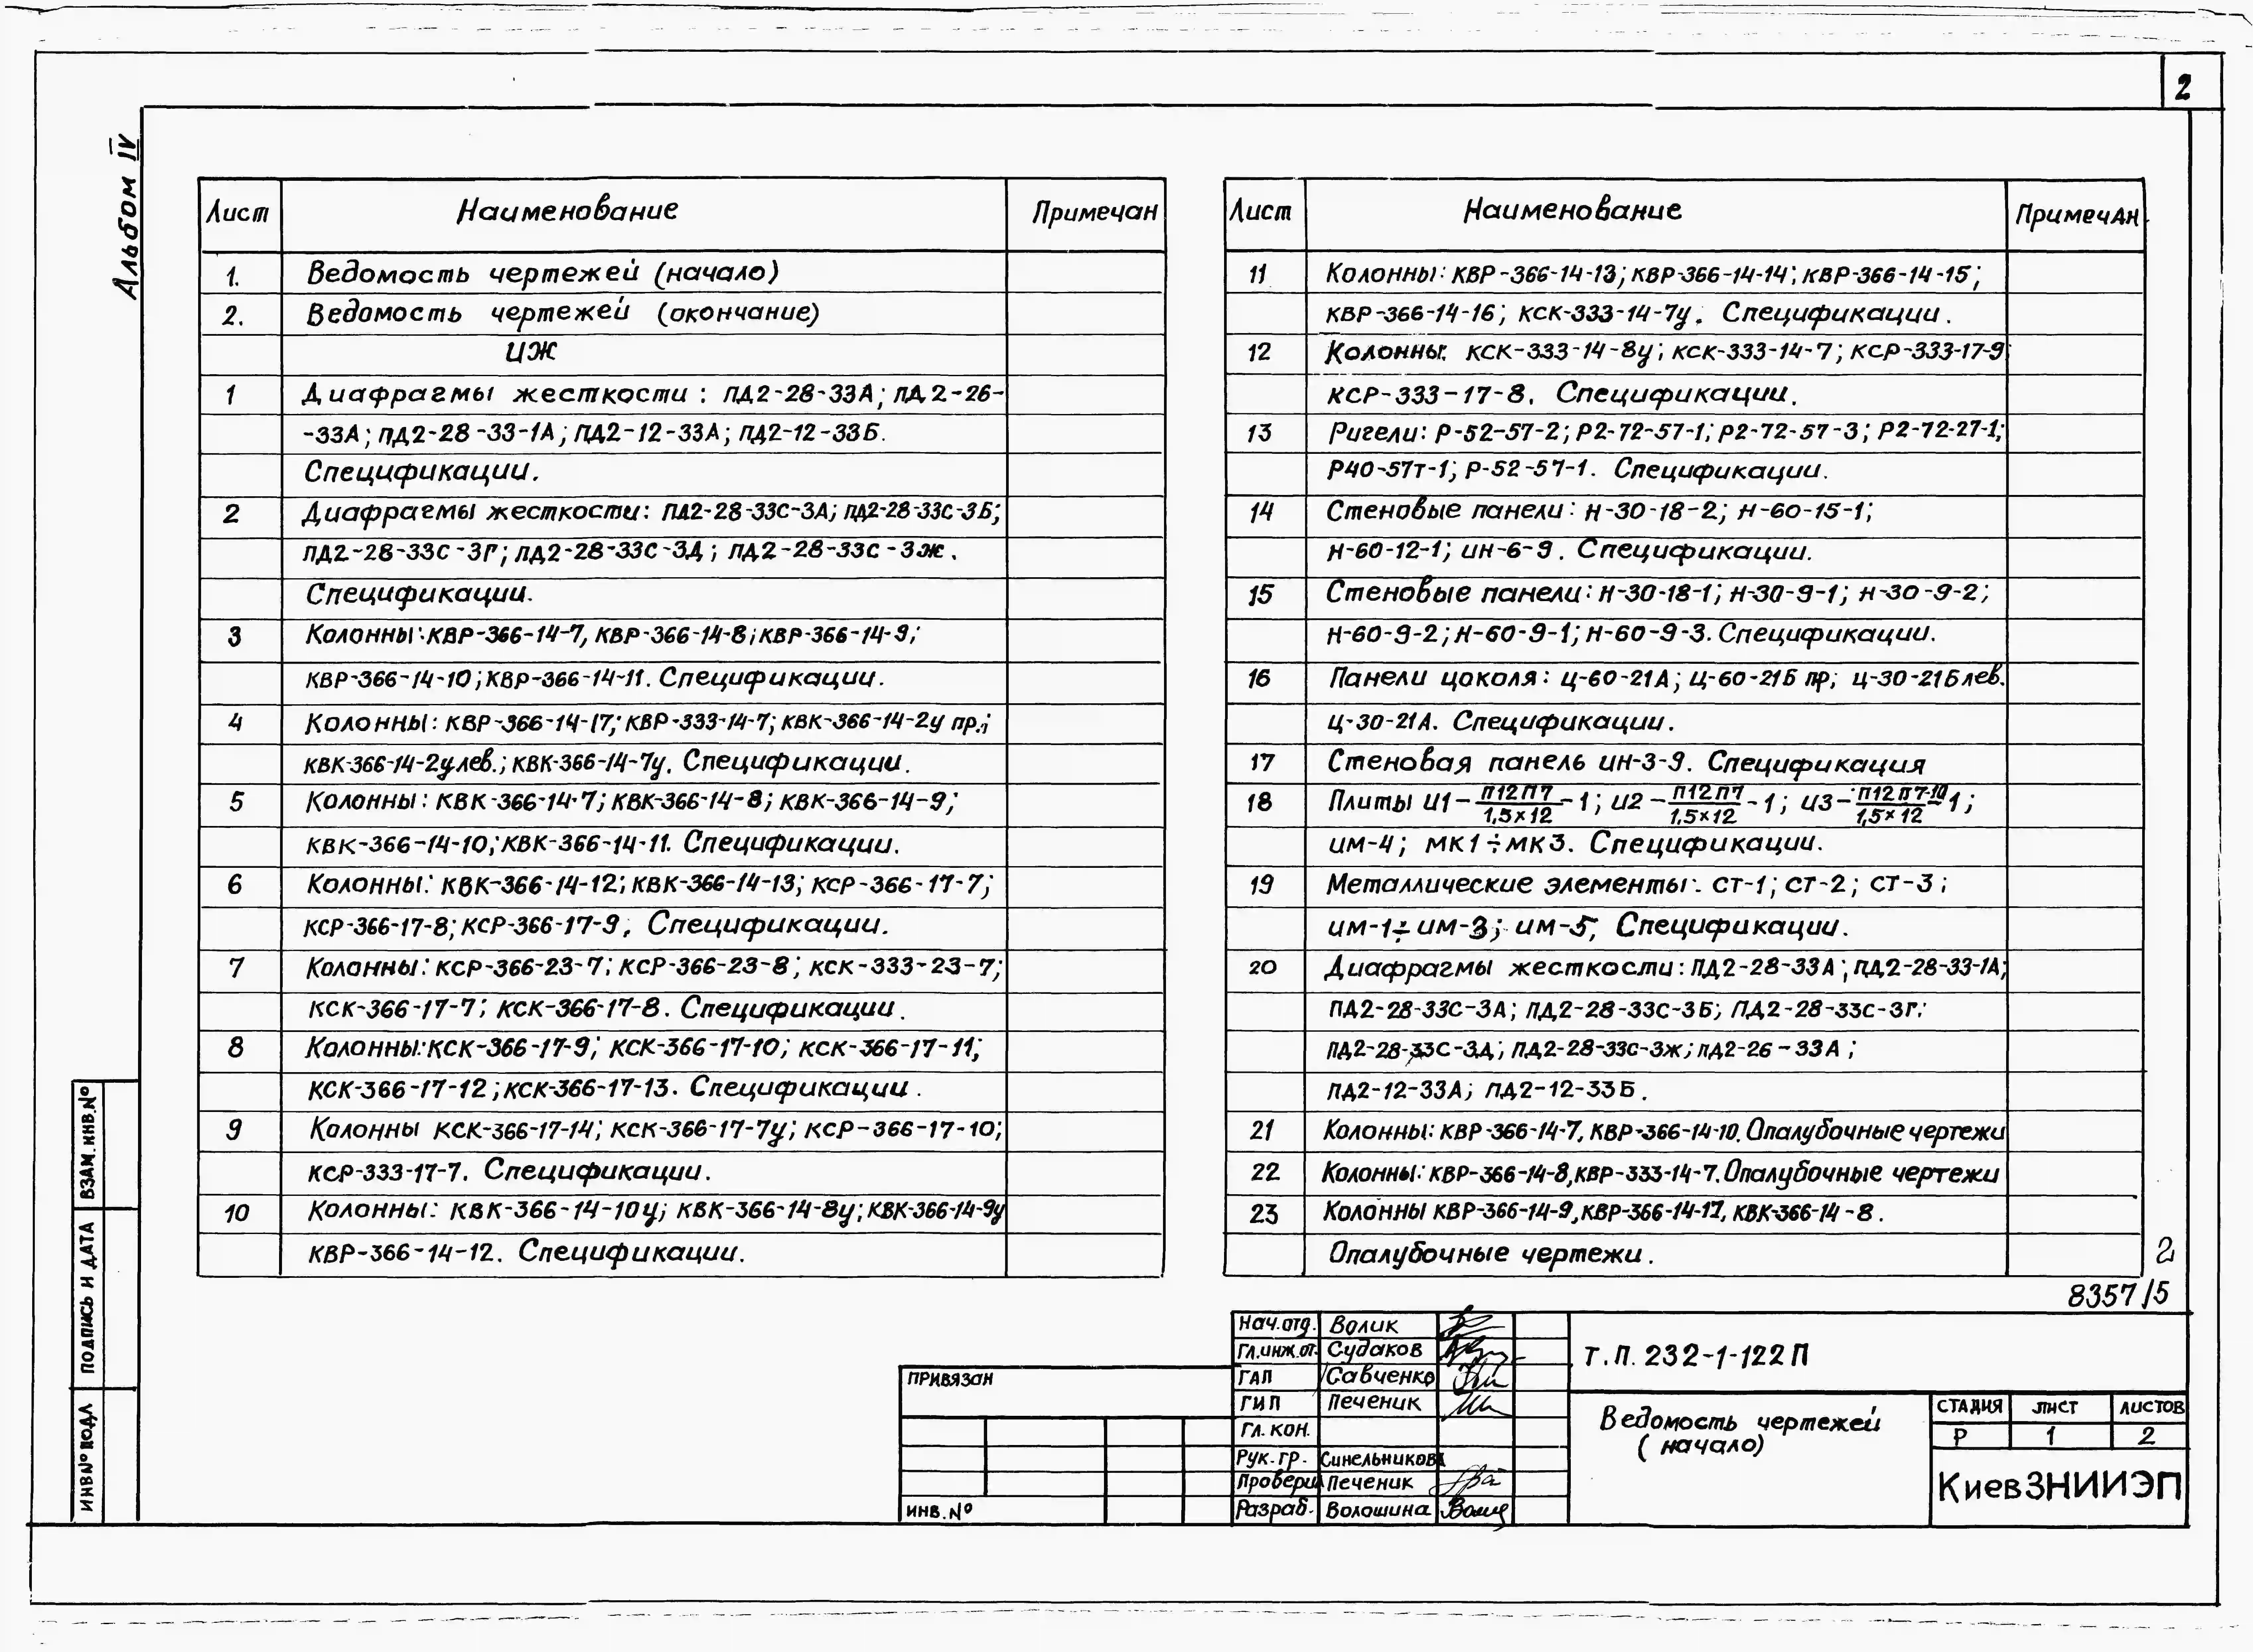 2
Альбом IV
Лист Наименование Примечан
1. Ведомость чертежей (начало)
2. Ведомость чертежей (окончание)
ИЖ
1 Диафрагмы жесткости : ПД2-28-33А; ПД2-26-
-33А; ПД2-28-33-1А; ПД2-12-33А; ПД2-12-33Б.
Спецификации.
2 Диафрагмы жесткости: ПД2-28-33С-3А; ПД2-28-33С-3Б;
ПД2-28-33С-3Г; ПД2-28-33С-3Д; ПД2-28-33С-3Ж.
Спецификации.
3 Колонны: КВР-366-14-7, КВР-366-14-8; КВР-366-14-9;
КВР-366-14-10; КВР-366-14-11. Спецификации.
4 Колонны: КВР-366-14-17; КВР-333-14-7; КВК-366-14-2у пр.;
КВК-366-14-2у лев.; КВК-366-14-7у. Спецификации.
5 Колонны: КВК-366-14-7; КВК-366-14-8; КВК-366-14-9;
КВК-366-14-10; КВК-366-14-11. Спецификации.
6 Колонны: КВК-366-14-12; КВК-366-14-13; КСР-366-17-7;
КСР-366-17-8; КСР-366-17-9, Спецификации.
7 Колонны: КСР-366-23-7; КСР-366-23-8; КСК-333-23-7;
КСК-366-17-7; КСК-366-17-8. Спецификации.
8 Колонны: КСК-366-17-9; КСК-366-17-10; КСК-366-17-11;
КСК-366-17-12; КСК-366-17-13. Спецификации.
9 Колонны КСК-366-17-14; КСК-366-17-7у; КСР-366-17-10;
КСР-333-17-7. Спецификации.
10 Колонны: КВК-366-14-10у; КВК-366-14-8у; КВК-366-14-9у
КВР-366-14-12. Спецификации.
Лист Наименование Примечан
11 Колонны: КВР-366-14-13; КВР-366-14-14; КВР-366-14-15;
КВР-366-14-16; КСК-333-14-7у. Спецификации.
12 Колонны: КСК-333-14-8у; КСК-333-14-7; КСР-333-17-9;
КСР-333-17-8. Спецификации.
13 Ригели: Р-52-57-2; Р2-72-57-1; Р2-72-57-3; Р2-72-27-1;
Р40-57т-1; Р-52-57-1. Спецификации.
14 Стеновые панели: Н-30-18-2; Н-60-15-1;
Н-60-12-1; ИН-6-9. Спецификации.
15 Стеновые панели: Н-30-18-1; Н-30-9-1; Н-30-9-2;
Н-60-9-2; Н-60-9-1; Н-60-9-3. Спецификации.
16 Панели цоколя: Ц-60-21А; Ц-60-21Б пр; Ц-30-21Б лев.
Ц-30-21А. Спецификации.
17 Стеновая панель ИН-3-9. Спецификация
18 Плиты И1-П12П7/1,5x12-1; И2-П12П7/1,5x12-1; И3-П12П7-10/1,5x12-1;
ИМ-4; МК1÷МК3. Спецификации.
19 Металлические элементы: СТ-1; СТ-2; СТ-3;
ИМ-1÷ИМ-3; ИМ-5; Спецификации.
20 Диафрагмы жесткости: ПД2-28-33А; ПД2-28-33-1А;
ПД2-28-33С-3А; ПД2-28-33С-3Б; ПД2-28-33С-3Г;
ПД2-28-33С-3Д; ПД2-28-33С-3Ж; ПД2-26-33А;
ПД2-12-33А; ПД2-12-33Б.
21 Колонны: КВР-366-14-7, КВР-366-14-10. Опалубочные чертежи
22 Колонны: КВР-366-14-8, КВР-333-14-7. Опалубочные чертежи
23 Колонны КВР-366-14-9, КВР-366-14-17, КВК-366-14-8.
Опалубочные чертежи.
2
8357/5
ВЗАМ. ИНВ. №
ПОДПИСЬ И ДАТА
ИНВ № ПОДЛ
ПРИВЯЗАН
ИНВ. №
Нач. отд. Волик
Гл. инж. от. Судаков
ГАП Савченко
ГИП Печеник
Гл. кон.
Рук. гр. Синельникова
Проверил Печеник
Разраб. Волошина
Т.П. 232-1-122 П
Ведомость чертежей
(начало)
СТАДИЯ ЛИСТ ЛИСТОВ
Р 1 2
КиевЗНИИЭП